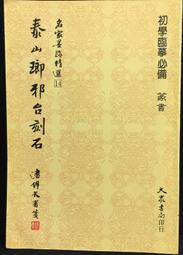 初學臨摹必備 篆書
名家墨跡精選14
泰山瑯邪台刻石
大眾書局印行